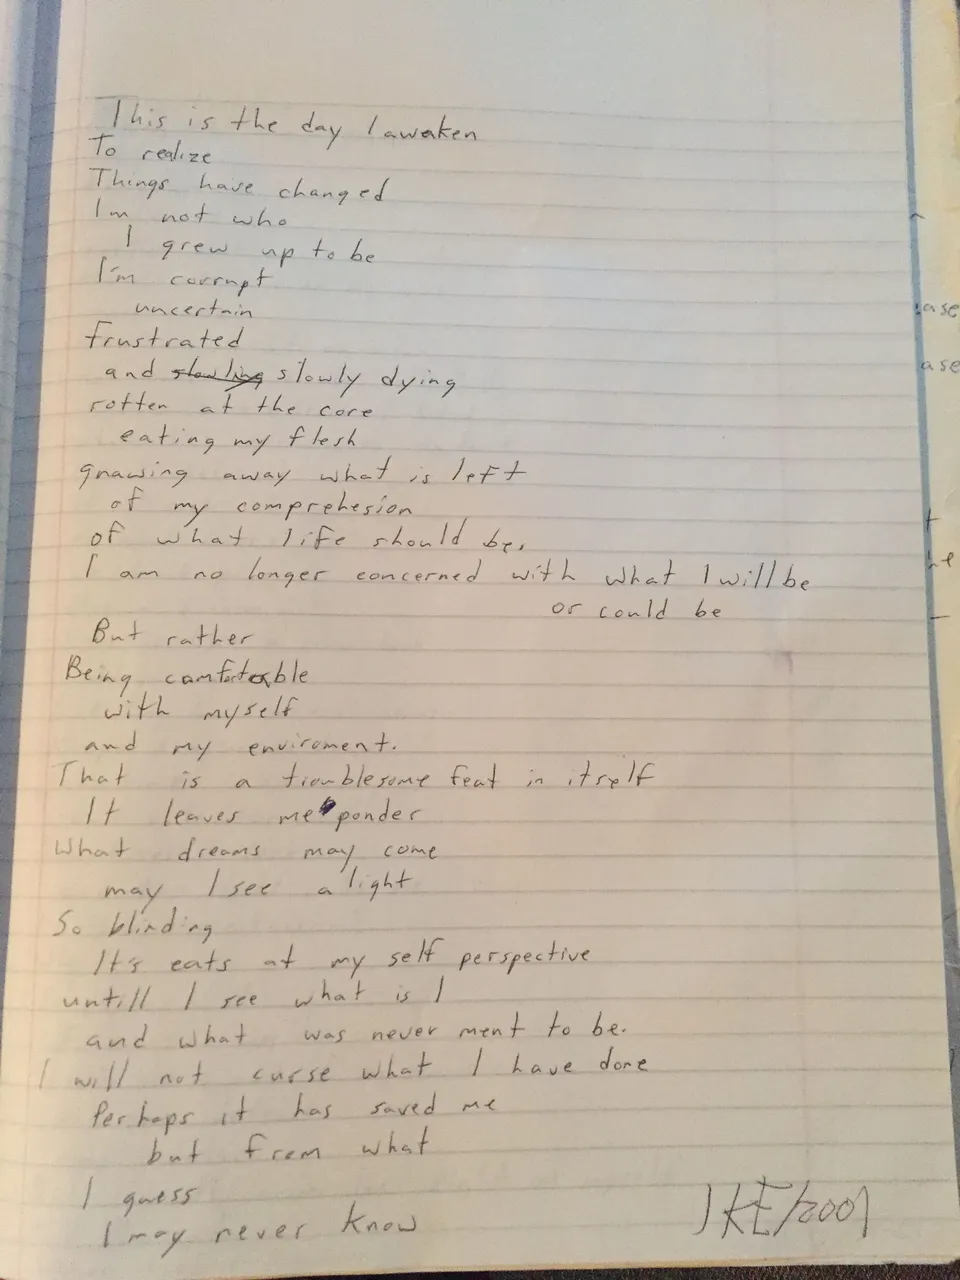 This is the day I awaken
To realize
Things have changed
Im not who
I grew up to be
I'm corrupt
uncertain
frustrated
and slowly dying
rotten at the core
eating my flesh
gnawing away what is left
of my comprehesion
of what life should be,
I am no longer concerned with what I will be
or could be
But rather
Being comfortable
with myself
and my enviroment.
That is a troublesome feat in itself
It leaves me ponder
What dreams may come
may I see a light
So blinding
It's eats at my self perspective
untill I see what is I
and what was never ment to be.
I will not curse what I have done
Perhaps it has saved me
but from what
I guess
I may never know
JKE/2001
ase
ase